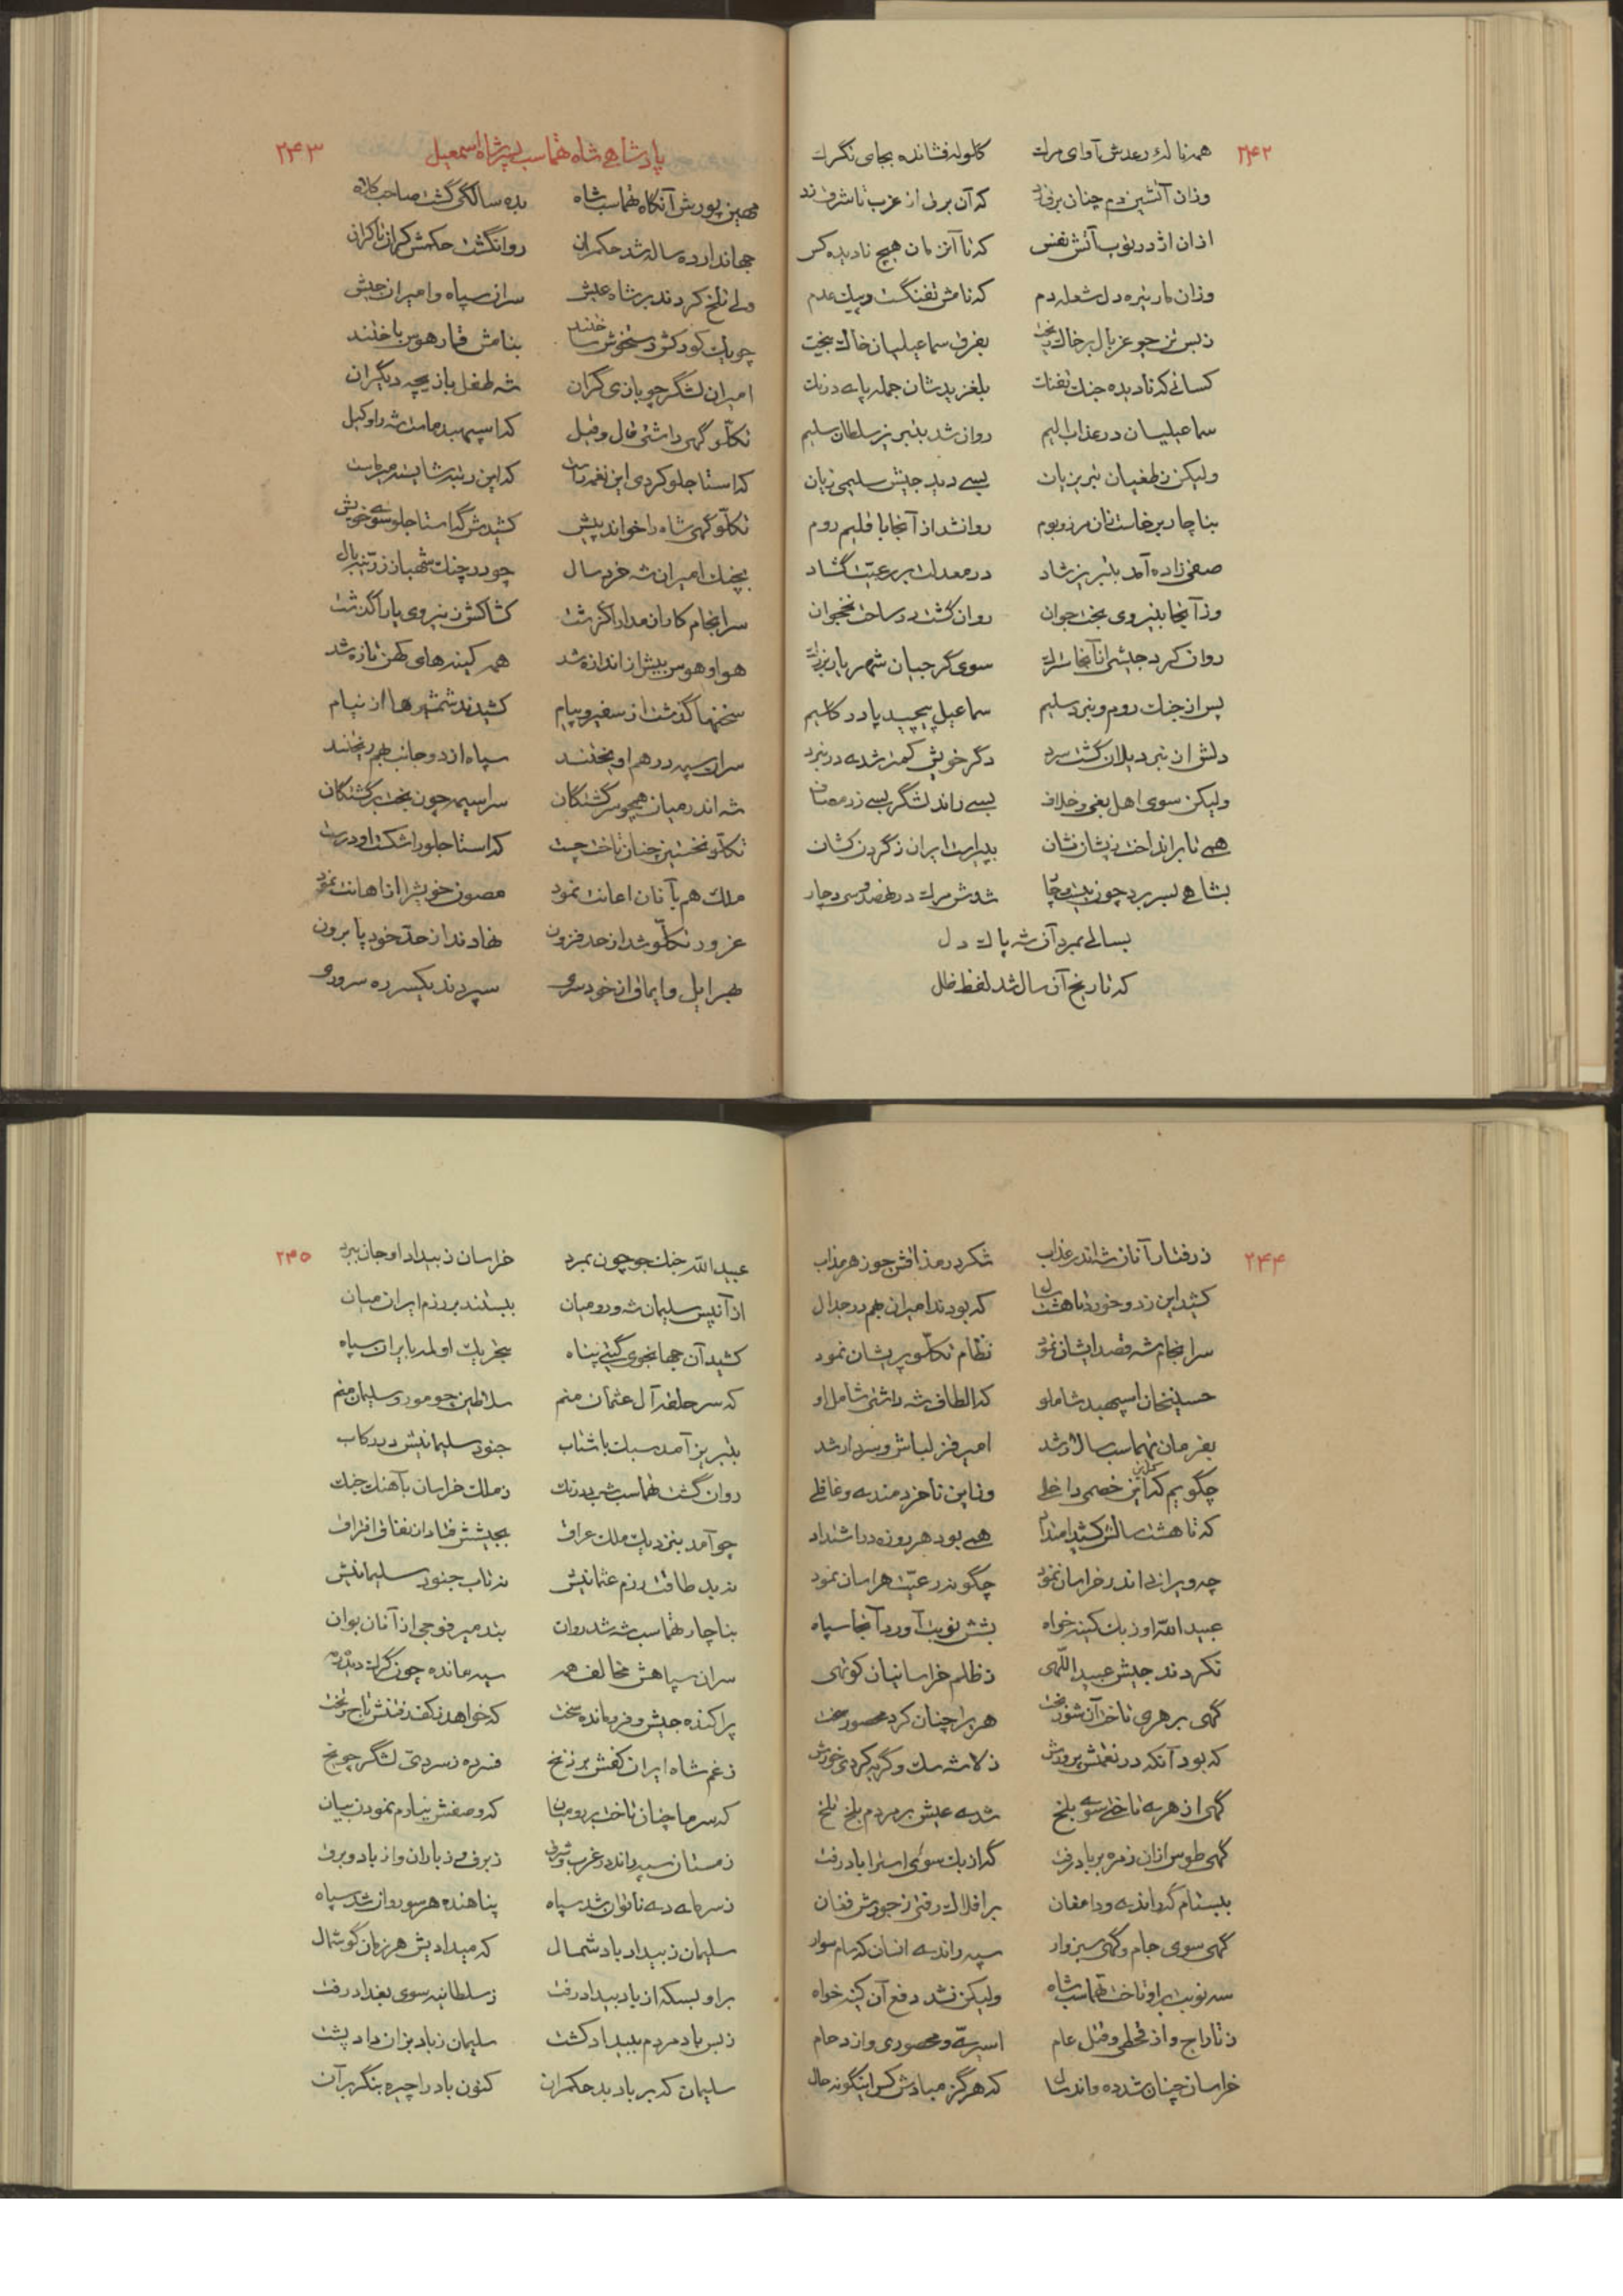 ۲۴۲
همه نالهٔ رعدش آوای مرگ کلوله فشانده بجای تگرگ
وزان آتشین دم چنان برق زد که آن برق از غرب تا شرق زد
ازان اژدر توپ آتش نفس که تا آنزمان هیچ نادیده کس
وزان مار تیره دل شعله دم که نامش تفنگست و پیک عدم
زبس تن چو غربال بر خاک بیخت بفرق سماعیلیان خاک بیخت
کسانیکه نادیده جنک تفنک بلغزیدشان جمله پای درنک
سماعیلیان در عذاب الیم روان شد بتبریز سلطان سلیم
ولیکن ز طغیان تبریزیان بسی دید جیش سلیمی زیان
بناچار برخاست زان مرز و بوم روانشد از آنجا باقلیم روم
صفی زاده آمد بتبریز شاد در معدلت بر رعیت گشاد
وز آنجا بنیروی بخت جوان روان گشت در ساحت نخجوان
روان کرد جیشی از آنجا سترک سوی گرجیان شهریار بزرک
پس از جنک روم و نبرد سلیم سماعیل پیچید پا در گلیم
دلش از نبرد یلان گشت سرد دگر خویش کمتر شدی در نبرد
ولیکن سوی اهل بغی و خلاف بسی راند لشگر بسی زد مصاف
همی تا برانداخت زیشان نشان بپیراست ایران ز گردن کشان
بشاهی بسر برد چون بیست و پنج شدش مرک در نهصد و سی دچار
بسالی بمرد آن شه پاک دل
که تاریخ آن سال شد لفظ ظل
۲۴۳
پادشاهی شاه طهماسب پسر شاه اسمعیل
مهین پورش آنگاه طهماسب شاه بده سالگی گشت صاحب کلاه
جهاندار ده ساله شد حکمران روانگشت حکمش کران تا کران
ولی تلخ کردند بر شاه عیش سران سپاه و امیران جیش
چو یک کودکش دستخوش ساختند بنامش قمار هوس باختند
امیران لشگر چو بازی گران شه طفل بازیچه دیگران
تکلّو گهی داشتی قال و قیل که اسپهبد ماست شه را وکیل
که استاجلو کردی این نغمه راست که این رتبه شایسته میر ماست
تکلّو گهی شاه را خواند پیش کشیدش گه استاجلو سوی خویش
بچنک امیران شه خرد سال چو در چنک شهباز زرّینه بال
سرانجام کار از مدارا گذشت کشاکش ز نیروی یارا گذشت
هوا و هوس بیش از اندازه شد همه کینه های کهن تازه شد
سخنها گذشت از سفیر و پیام کشیدند شمشیرها از نیام
سران سپه در هم آویختند سپاه از دو جانب بهم ریختند
شه اندر میان همچو سرگشتگان سراسیمه چون بخت برگشتگان
تکلّو نخستین چنان تاخت چست که استاجلو را شکست او درست
ملک هم بآنان اعانت نمود مصون خویش را از اهانت نمود
غرور تکلّو شد از حد فزون نهادند از حدّ خود پا برون
سپردند یکسر ره سرور و
۲۴۴
ز رفتار آنان شه اندر عذاب شکر در مذاقش چو زهر مذاب
کشید این زد و خورد تا هشت سال که بودند امیران بهم در جدال
سرانجام شه قصد ایشان نمود نظام تکلّو پریشان نمود
حسینخان اسپهبد شاملو که الطاف شه داشتی شامل او
بفرمان طهماسب سالار شد امیر قزلباش و سردار شد
چگویم که از این خصمی داخلی وز این ناخردمندی و غافلی
که تا هشت سالش کشید امتداد همی بود هر روزه در اشتداد
چه ویرانی اندر خراسان نمود چگونه رعیّت هراسان نمود
عبیدالله اوزبک کینه خواه بشش نوبت آورد آنجا سپاه
نکردند جیش عبیداللهی ز ظلم خراسانیان کوتهی
گهی بر هری تاخت آن شوربخت هری را چنان کرد محصور سخت
که بود آنکه در نعمتش پرورش ز لاشه سک و گربه کردی خورش
گهی از هری تاختی سوی بلخ شدی عیش بر مردم بلخ تلخ
گهی طوس ازان زمره بر باد رفت گه ازبک سوی استراباد رفت
ببسطام گه راندی و دامغان بر افلاک رفتی ز جورش فغان
گهی سوی جام و گهی سبزوار سپه راندی
سه نوبت براو تاخت طهماسب شاه ولیکن نشد دفع آن کینه خواه
ز تاراج و از قحطی و قتل عام اسیری و محصوری و ازدحام
خراسان چنان شد که هرگز مبادش کس اینگونه حال
۲۴۵
عبیدالله جنک جو چون بمرد خراسان ز بیداد او جان ببرد
از آن پس سلیمان شه و رومیان ببستند بر رزم ایران میان
کشید آن جهانجوی گیتی پناه بتحریک اولمه بایران سپاه
که سر حلقه آل عثمان منم سلاطین چو مور و سلیمان منم
بتبریز آمد سبک با شتاب جنود سلیمانیش در رکاب
روان گشت طهماسب شه بیدرنک ز ملک خراسان بآهنک جنک
چو آمد بنزدیک ملک عراق بجیشش فتاد از نفاق افتراق
ندید طاقت رزم عثمانیش نه تاب جنود سلیمانیش
بناچار طهماسب شه شد روان
سران سپاهش مخالف همه سیه مانده چون گرگ دیده رمه
پراکنده جیش و فرومانده سخت که خواهد ز کف رفتنش تاج و تخت
ز غم شاه ایران کفش بر زنخ فسرده ز سردی لشگر چو یخ
که سرما چنان تاخت بر رومیان که وصفش نیارم نمودن بیان
زمستان سپه راند در غرب و شرق ز برف و ز باران و از باد و برق
ز سرمای دی ناتوان شد سپاه پناهنده هر سو روان شد سپاه
سلیمان ز بیداد باد شمال که میدادیش هر زمان گوشمال
بر او بسکه از باد بیداد رفت ز سلطانیه سوی بغداد رفت
ز بس باد مردم ببیداد کشت سلیمان ز باد بزان داد پشت
سلیمان که بر باد بد حکمران کنون باد را چیره بنگر بر آن